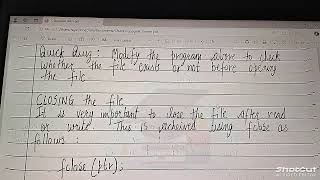 Quick Quiz : Modify the program above to check
whether the file exists or not before opening
the file.
CLOSING the file
It is very important to close the file after read
or write. This is achieved using fclose as
follows :
fclose (ptr);
ShotCut